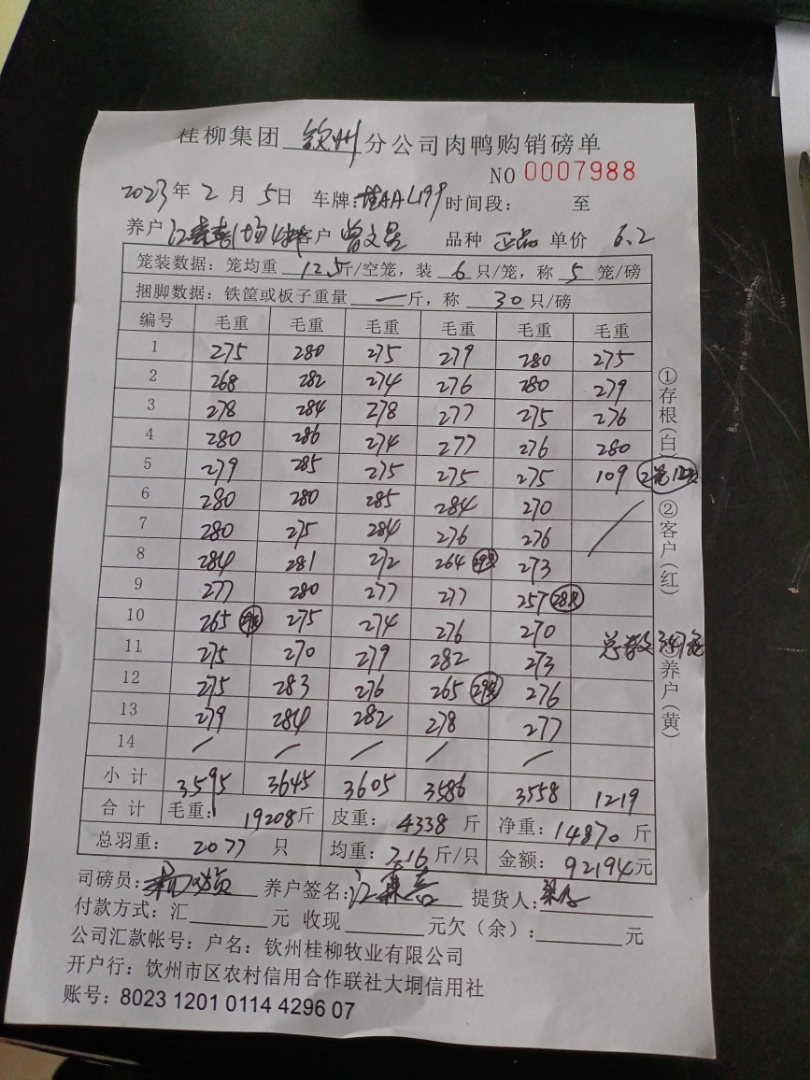 桂柳集团 钦州 分公司肉鸭购销磅单
NO 0007988
2023 年 2 月 5 日 车牌: 桂AAL199 时间段: 至
养户 客户 曾文 品种 正品 单价 6.2
笼装数据: 笼均重 12.5 斤/空笼, 装 6 只/笼, 称 5 笼/磅
捆脚数据: 铁筐或板子重量 一 斤, 称 30 只/磅
编号 毛重 毛重 毛重 毛重 毛重 毛重
1 275 280 275 279 280 275
2 268 282 274 276 280 279
3 278 284 278 277 275 276
4 280 286 274 277 276 280
5 279 285 275 275 275 109
6 280 280 285 284 270
7 280 275 284 276 276
8 284 281 272 264 273
9 277 280 277 277 257 28只
10 265 29只 275 274 276 270
11 275 270 279 282 273
12 275 283 276 265 29只 276
13 279 284 282 278 277
14 / / / / /
小计 3595 3645 3605 3586 3558 1219
合计 毛重: 19208 斤 皮重: 4338 斤 净重: 14870 斤
总羽重: 2077 只 均重: 7.16 斤/只 金额: 92194 元
司磅员: 养户签名: 江森喜 提货人:
付款方式: 汇 元 收现 元欠(余): 元
公司汇款帐号: 户名: 钦州桂柳牧业有限公司
开户行: 钦州市区农村信用合作联社大垌信用社
账号: 8023 1201 0114 4296 07
①存根(白)
②客户(红)
养户(黄)
总数